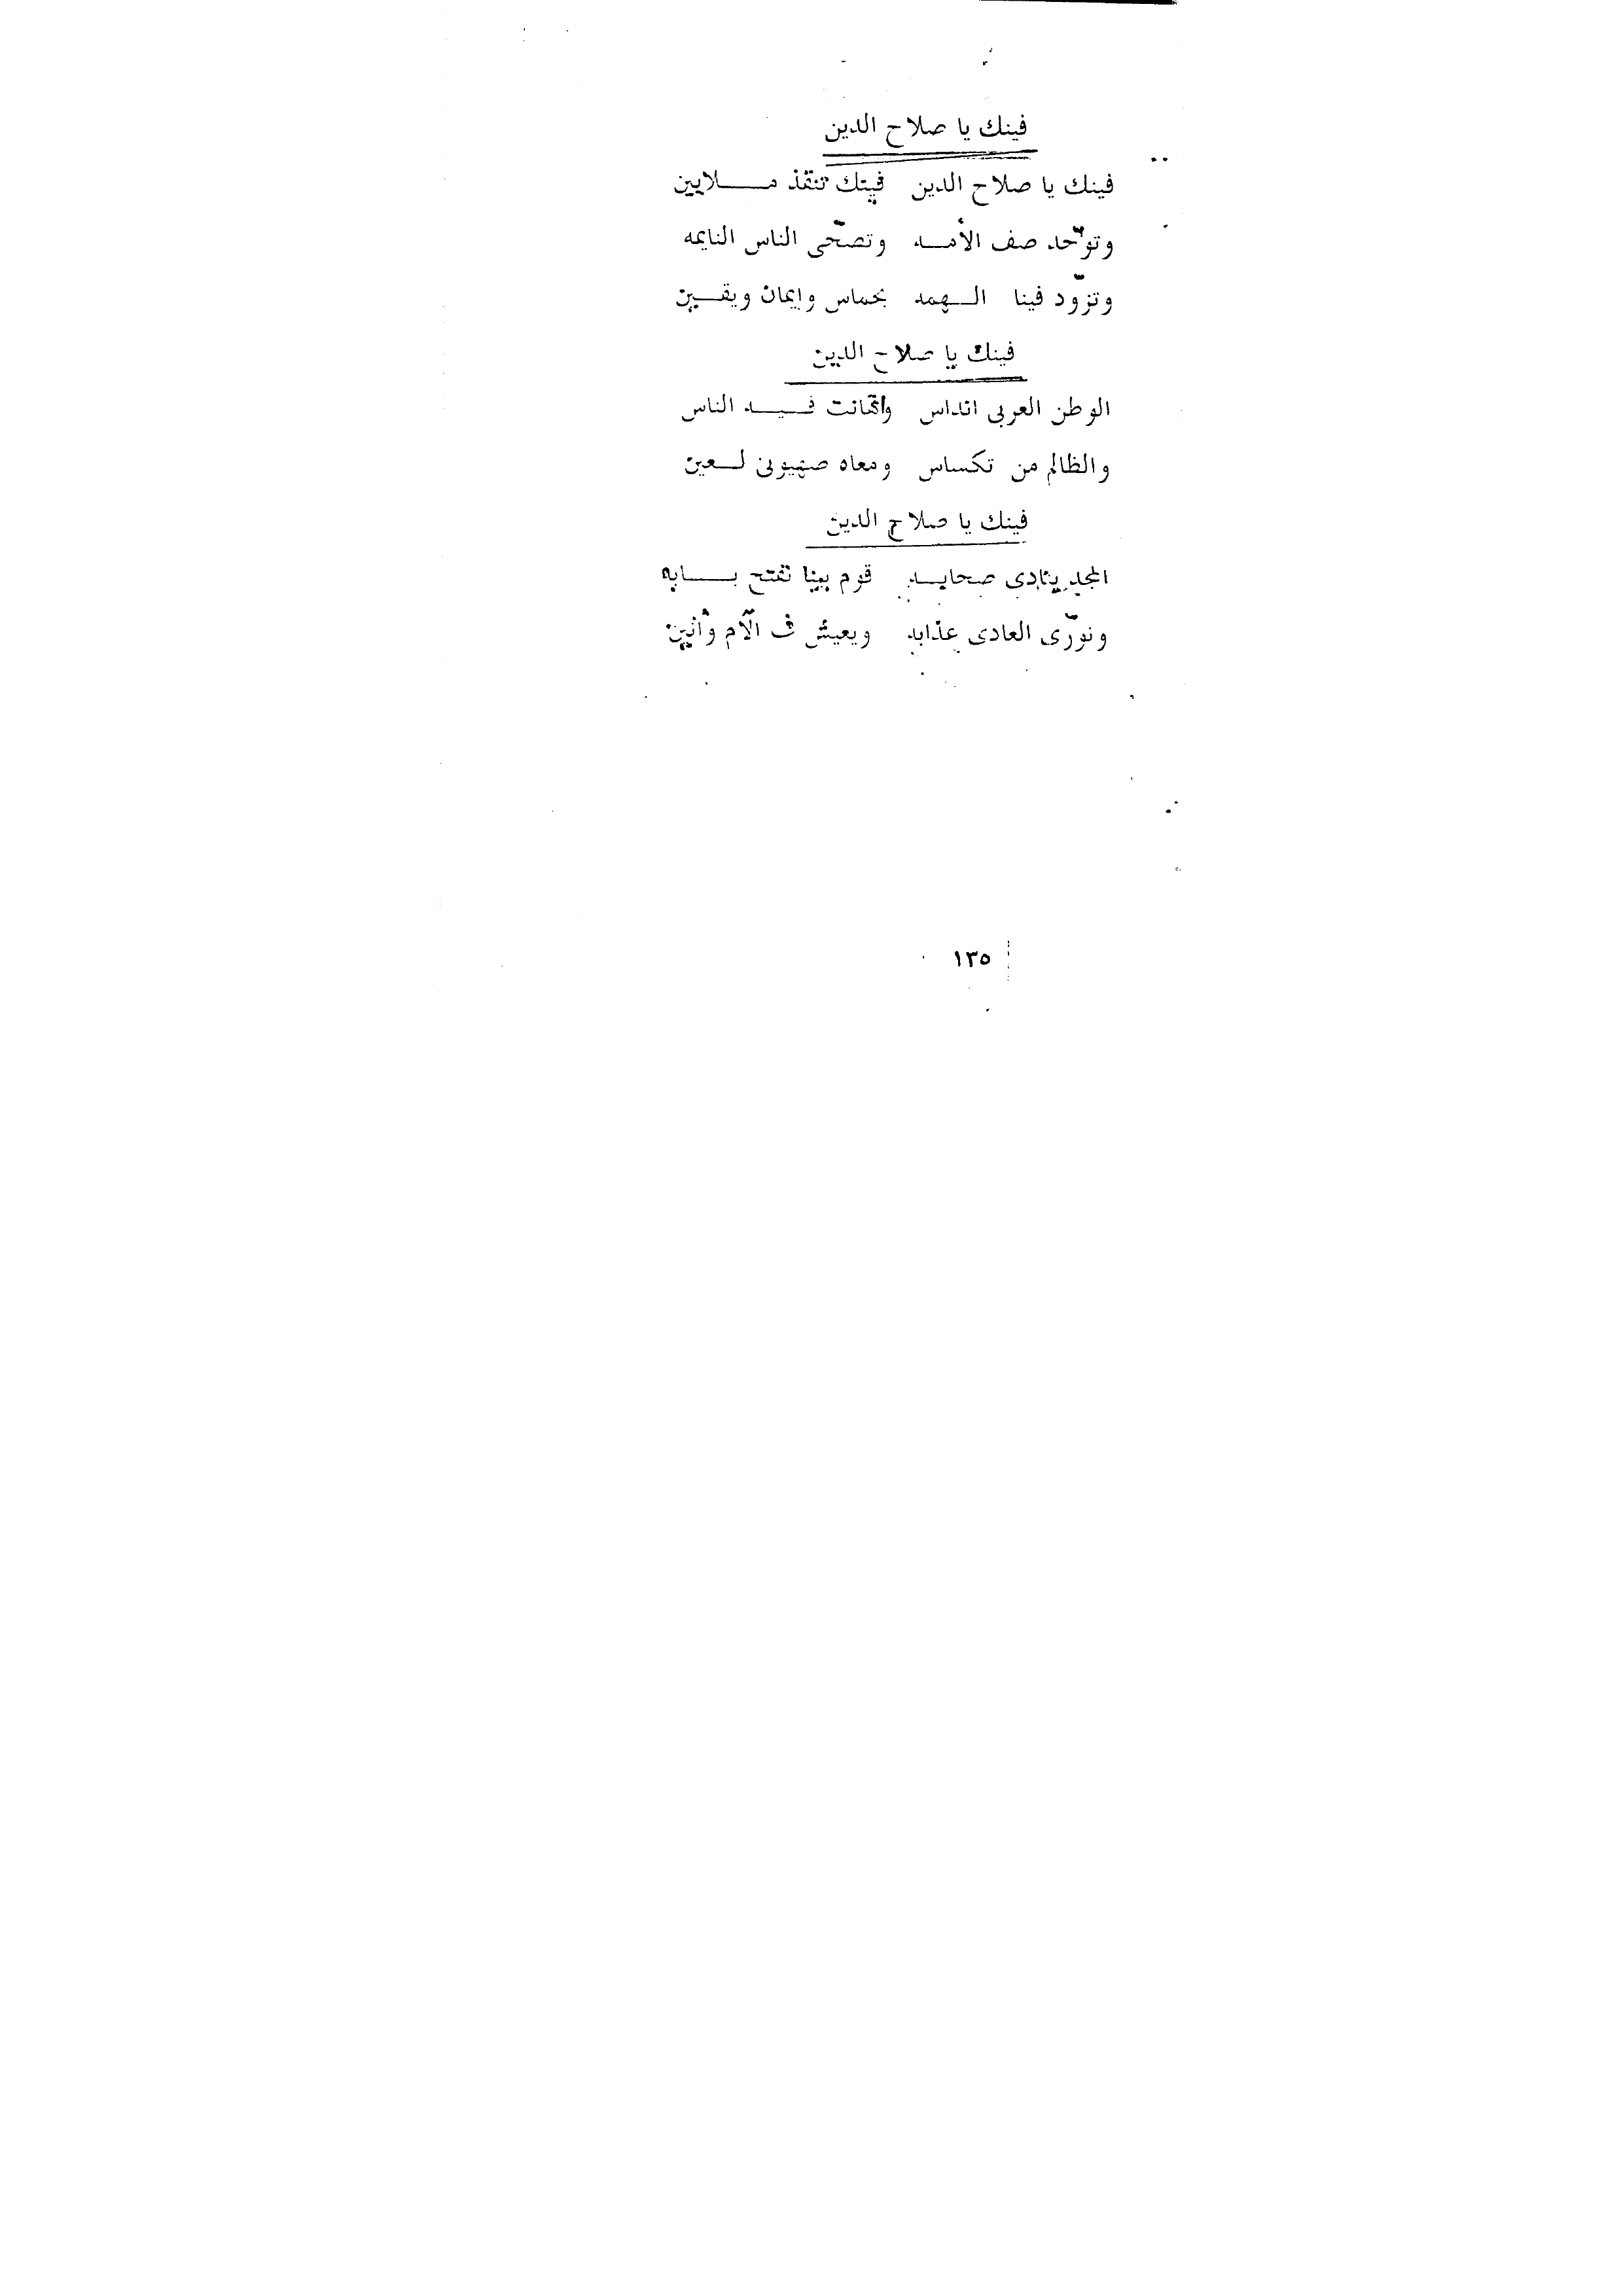 فينك يا صلاح الدين
فينك يا صلاح الدين فينك تنقذ مــلايين
وتوّحد صف الأمــه وتصحّى الناس النايمه
وتزوّد فينا الــهمه بحماس وايمان ويقــين
فينك يا صلاح الدين
الوطن العربى انداس فــيــد الناس
والظالم من تكساس ومعاه صهيونى لــعين
فينك يا صلاح الدين
المجد ينادى صحابــه قوم بينا نفتح بــابه
ونورّى العادى عذابه ويعيش ف آلآم وأنين
١٣٥